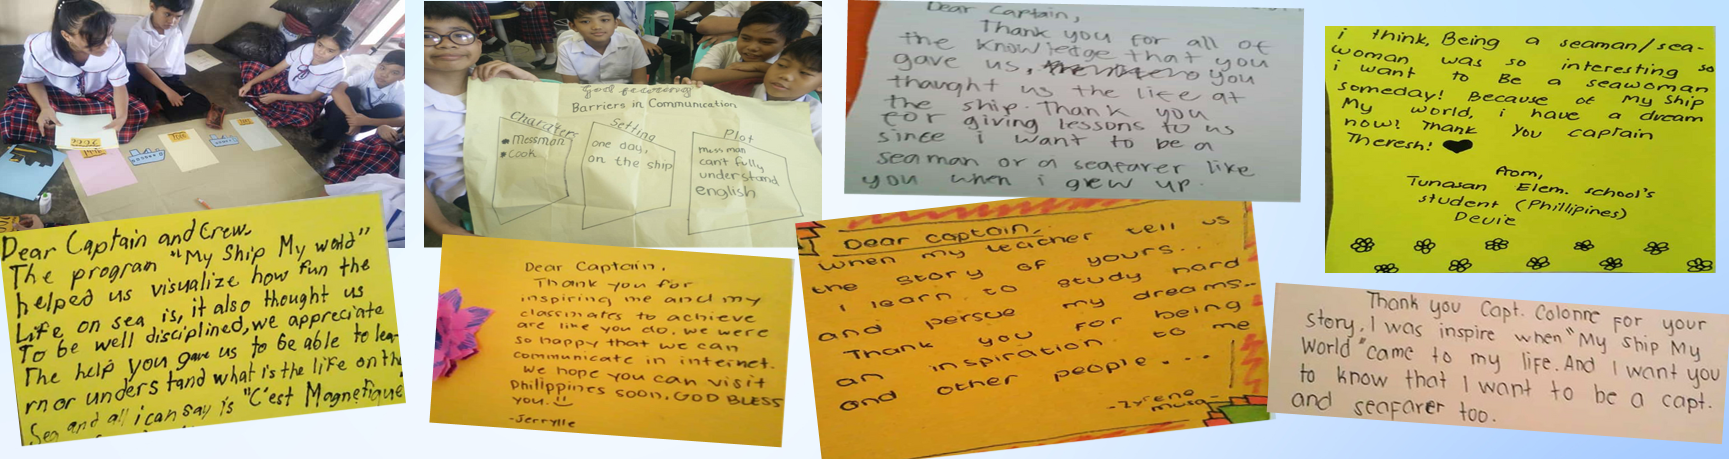 God favoring
Barriers in Communication
Characters
Messman
Cook
Setting
one day,
on the ship
Plot
mess man
can't fully
understand
english
Dear Captain,
Thank you for all of
the knowledge that you
gave us, you
thaught us the life at
the ship. Thank you
for giving lessons to us
since i want to be a
seaman or a seafarer like
you when i grew up.
i think, Being a seaman/sea-
woman was so interesting so
i want to Be a seawoman
someday! Because of My Ship
My world, i have a dream
now! Thank you captain
Theresh!
From,
Tunasan Elem. school's
student (Phillipines)
Devie
Dear Captain and Crew,
The program "My Ship My wold"
helped us visualize how fun the
Life on sea is, it also thought us
To be well disciplined, we appreciate
The help you gave us to be able to lea-
rn or understand what is the life on th
Sea and all i can say is "C'est Magnetique
Dear Captain,
Thank you for
inspiring me and my
classmates to achieve
are like you do. we were
so happy that we can
communicate in internet.
we hope you can visit
Philippines soon. GOD BLESS
you.
-Jerrylle
Dear captain,
when my teacher tell us
the story of yours..
i learn to study hard
and persue my dreams...
Thank you for being
an inspiration to me
and other people...
-Zyrene
musa-
Thank you Capt. Colonne for your
story. I was inspire when "My Ship My
World" came to my life. And I want you
to know that I want to be a capt.
and seafarer too.